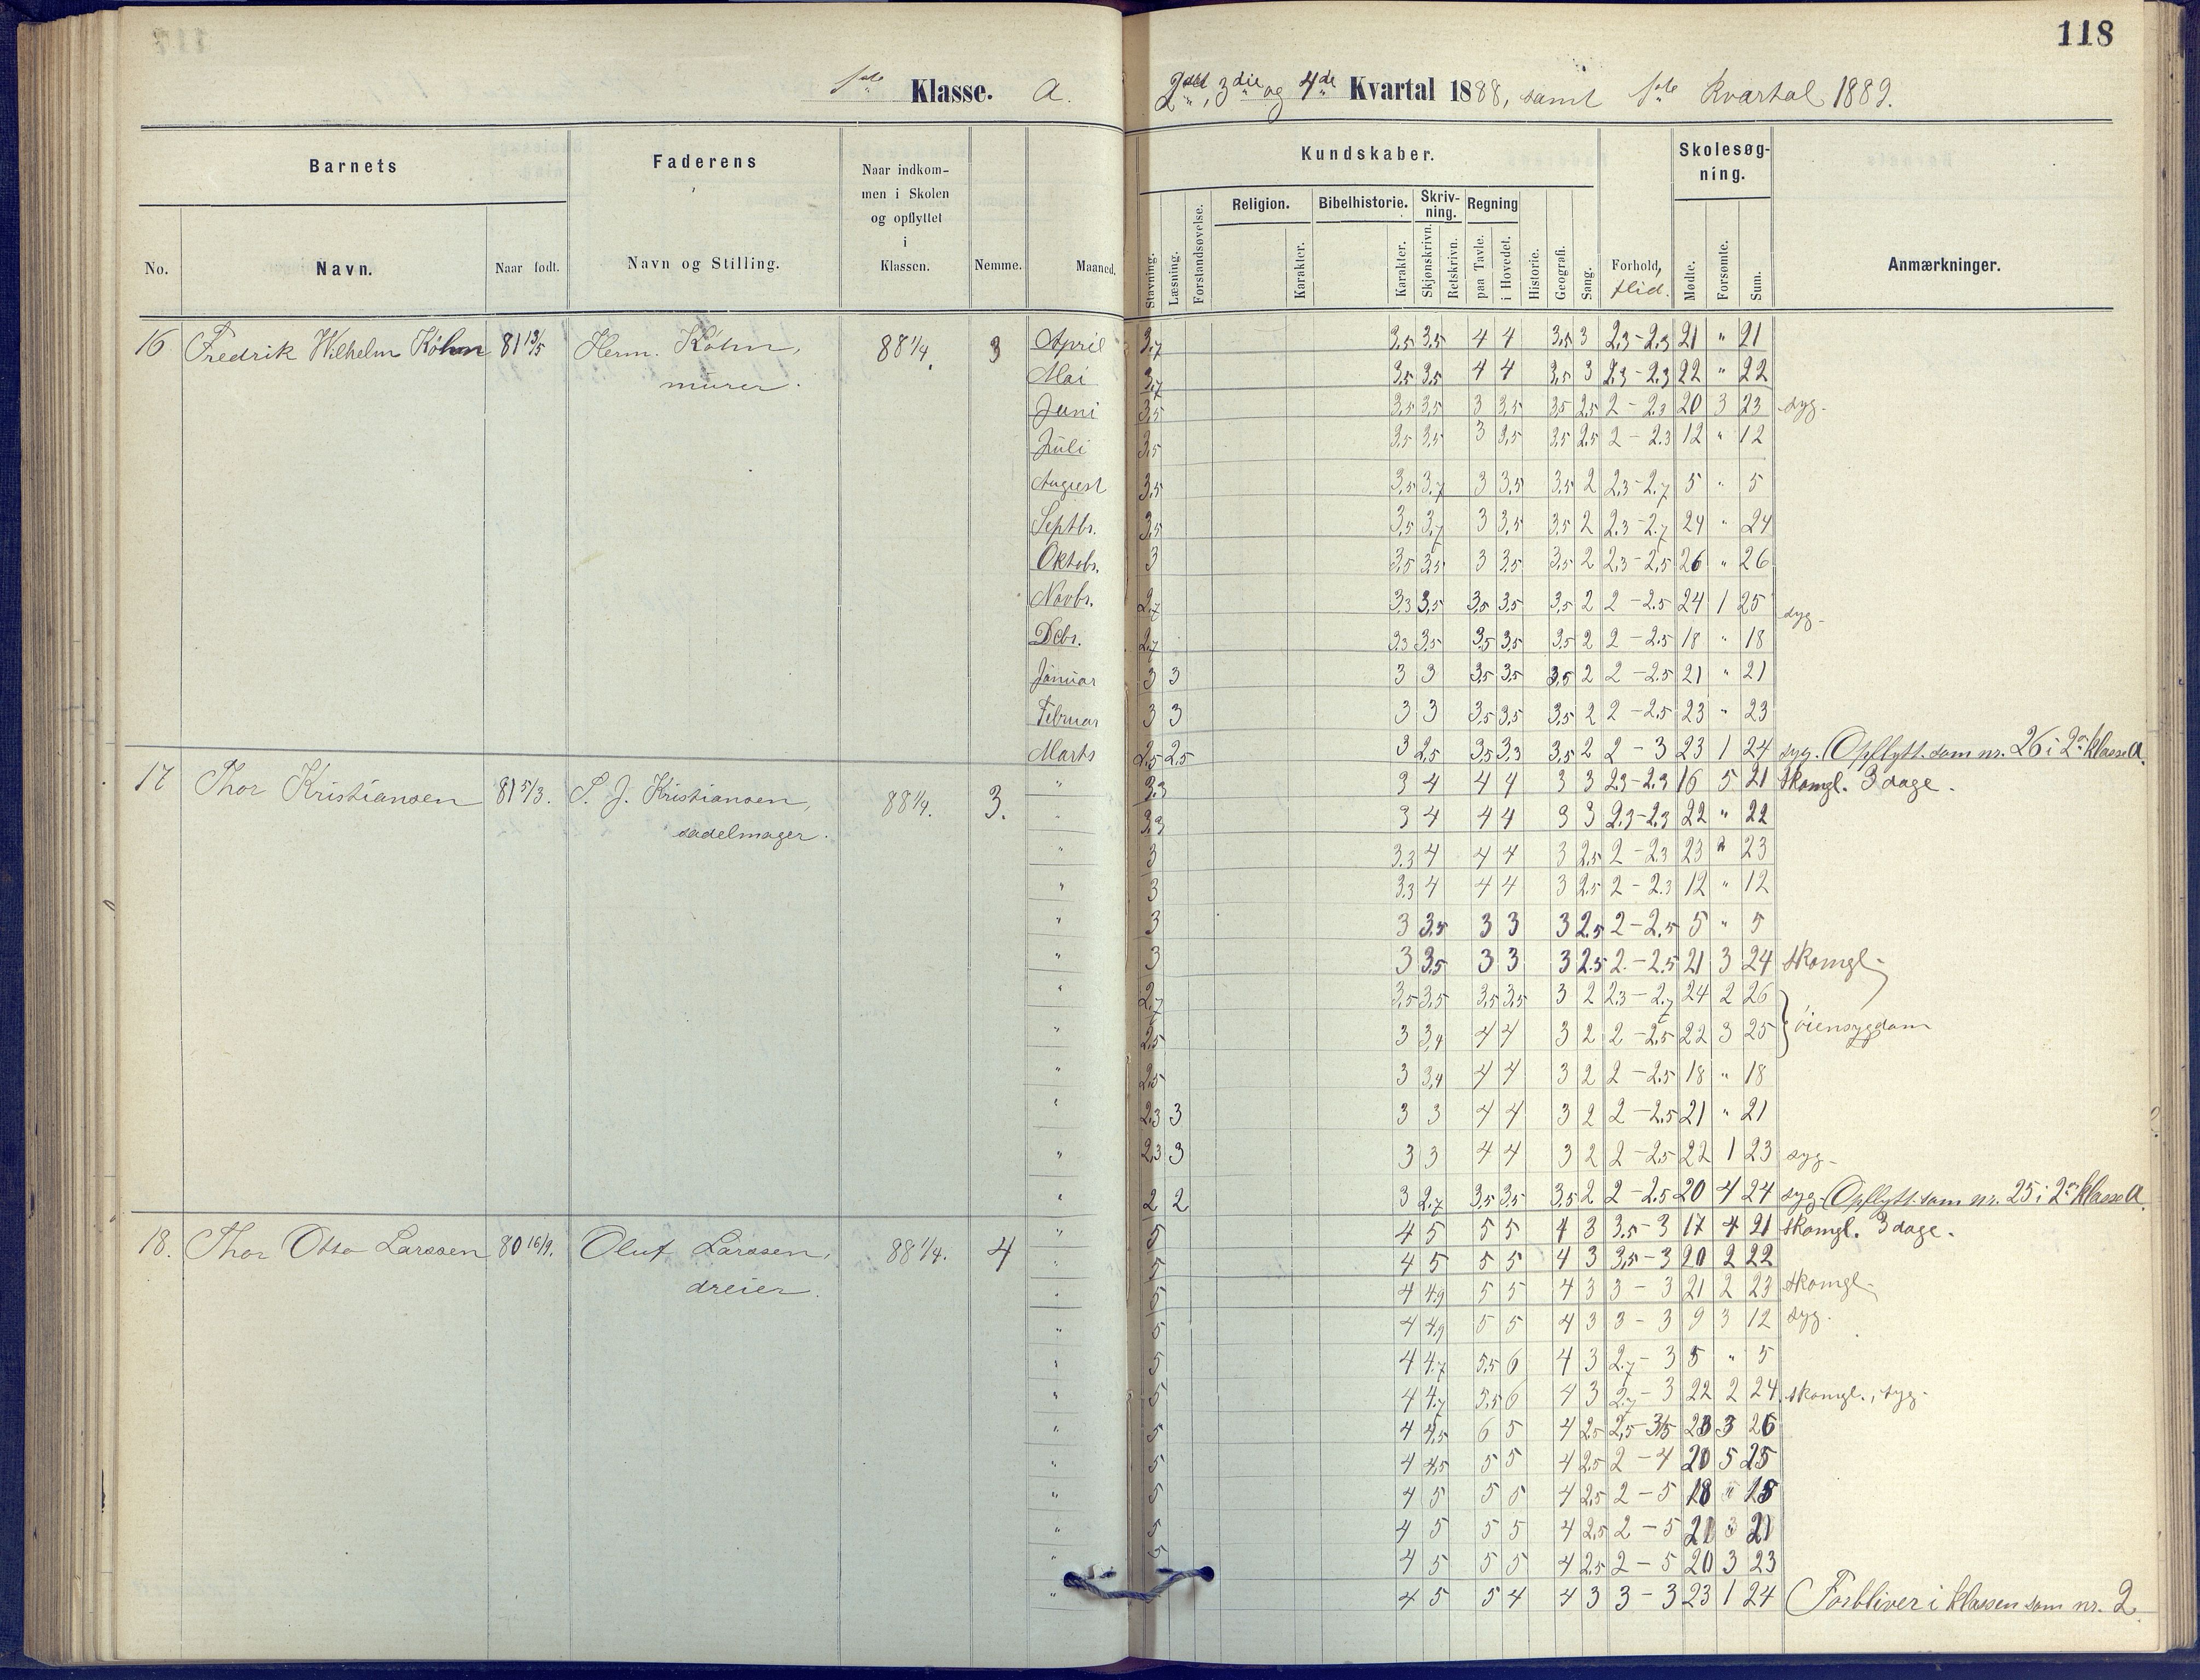 118
1ste Klasse. a. 2det, 3die og 4de Kvartal 1888, samt 1ste Kvartal 1889.
Barnets Faderens Naar indkommen i Skolen og opflyttet i Klassen. Nemme. Maaned. Kundskaber. Forhold, flid. Skolesøgning. Anmærkninger.
No. Navn. Naar født. Navn og Stilling. Stavning. Læsning. Forstandsøvelse. Religion. Karakter. Bibelhistorie. Karakter. Skrivning. Skjønskrivn. Retskrivn. Regning paa Tavle. i Hovedet. Historie. Geografi. Sang. Mødte. Forsømte. Sum.
16 Fredrik Wilhelm Köhn 81 13/5 Herm. Köhn, murer. 88 1/4. 3
April 3,7 3,5 3,5 4 4 3,5 3 2,3-2,3 21 " 21
Mai 3,7 3,5 3,5 4 4 3,5 3 2,3-2,3 22 " 22
Juni 3,5 3,5 3,5 3 3,5 3,5 2,5 2-2,3 20 3 23 syg.
Juli 3,5 3,5 3,5 3 3,5 3,5 2,5 2-2,3 12 " 12
August 3,5 3,5 3,7 3 3,5 3,5 2 2,3-2,7 5 " 5
Septbr. 3,5 3,5 3,7 3 3,5 3,5 2 2,3-2,7 24 " 24
Oktobr. 3 3,5 3,5 3 3,5 3,5 2 2,3-2,5 26 " 26
Novbr. 2,7 3,3 3,5 3,5 3,5 3,5 2 2-2,5 24 1 25 syg.
Dcbr. 2,7 3,3 3,5 3,5 3,5 3,5 2 2-2,5 18 " 18
Januar 3 3 3 3 3,5 3,5 3,5 2 2-2,5 21 " 21
Februar 3 3 3 3 3,5 3,5 3,5 2 2-2,5 23 " 23
Marts 2,5 2,5 3 2,5 3,5 3,3 3,5 2 2-3 23 1 24 syg. Opflytt. som nr. 26 i 2n klasse A.
17 Thor Kristiansen 81 5/3. S. J. Kristiansen, sadelmager. 88 1/4. 3.
" 3,3 3 4 4 4 3 3 2,3-2,3 16 5 21 skomgl. 3 dage.
" 3,3 3 4 4 4 3 3 2,3-2,3 22 " 22
" 3 3,3 4 4 4 3 2,5 2-2,3 23 " 23
" 3 3,3 4 4 4 3 2,5 2-2,3 12 " 12
" 3 3 3,5 3 3 3 2,5 2-2,5 5 " 5
" 3 3 3,5 3 3 3 2,5 2-2,5 21 3 24 skomgl.
" 2,7 3,5 3,5 3,5 3,5 3 2 2,3-2,7 24 2 26
" 2,5 3 3,4 4 4 3 2 2-2,5 22 3 25 øiensygdom
" 2,5 3 3,4 4 4 3 2 2-2,5 18 " 18
" 2,3 3 3 3 4 4 3 2 2-2,5 21 " 21
" 2,3 3 3 3 4 4 3 2 2-2,5 22 1 23 syg.
" 2 2 3 2,7 3,5 3,5 3,5 2 2-2,5 20 4 24 syg. Opflytt. som nr. 25 i 2n klasse A.
18. Thor Otto Larssen 80 16/9. Oluf Larssen, dreier. 88 1/4. 4
" 5 4 5 5 5 4 3 3,5-3 17 4 21 skomgl. 3 dage.
" 5 4 5 5 5 4 3 3,5-3 20 2 22
" 5 4 4,9 5 5 4 3 3-3 21 2 23 skomgl.
" 5 4 4,9 5 5 4 3 3-3 9 3 12 syg.
" 5 4 4,7 5,5 6 4 3 2,7-3 5 " 5
" 5 4 4,7 5,5 6 4 3 2,7-3 22 2 24 skomgl., syg.
" 5 4 4,5 6 5 4 2,5 2,5-3,5 23 3 26
" 5 4 4,5 5 5 4 2,5 2-4 20 5 25
" 5 4 5 5 5 4 2,5 2-5 18 " 18
" 5 4 5 5 5 4 2,5 2-5 21 " 21
" 5 4 5 5 5 4 2,5 2-5 20 3 23
" 4 5 5 4 4 3 3-3 23 1 24 Forbliver i klassen som nr. 2